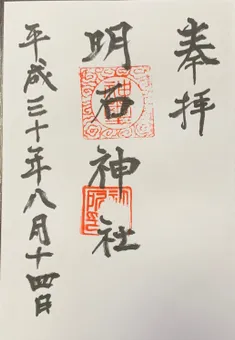 奉拝
明呑神社
平成三十年八月十四日